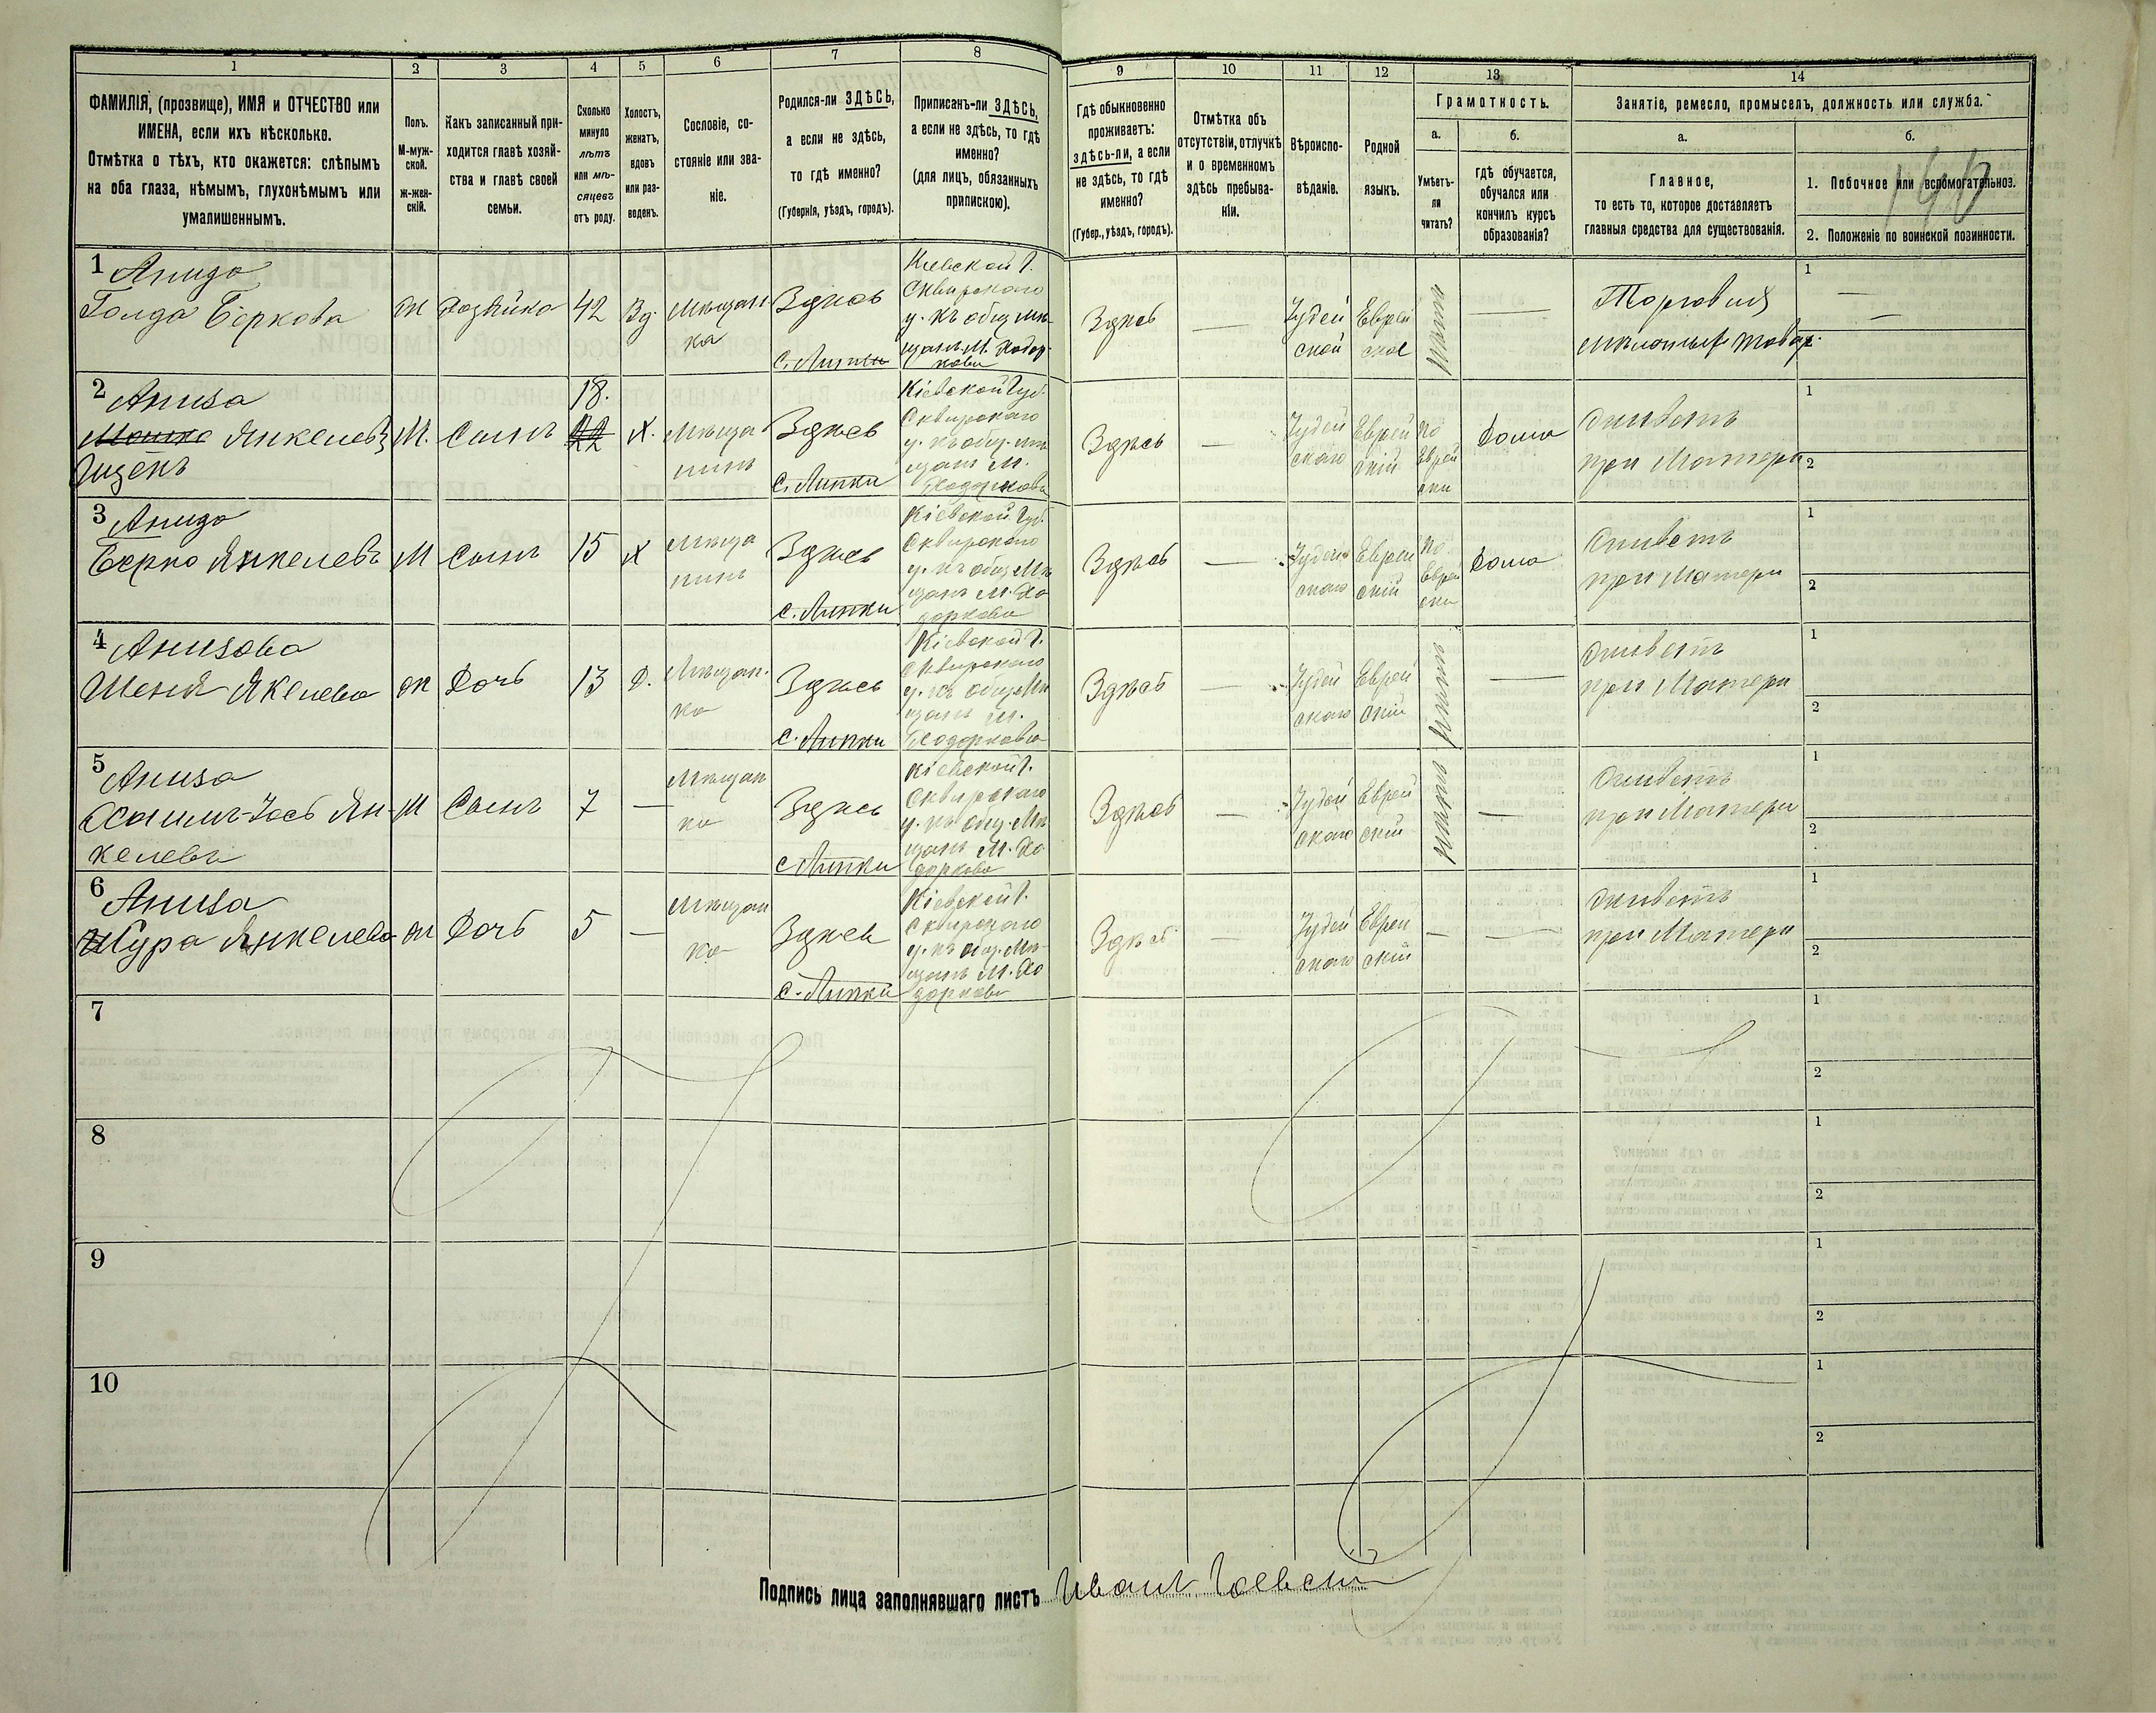 1
2
3
4
5
6
7
8
ФАМИЛІЯ, (прозвище), ИМЯ и ОТЧЕСТВО или
ИМЕНА, если ихъ нѣсколько.
Отмѣтка о тѣхъ, кто окажется: слѣпымъ
на оба глаза, нѣмымъ, глухонѣмымъ или
умалишеннымъ.
Полъ.
М-муж-
ской.
Ж-жен-
скій.
Какъ записанный при-
ходится главѣ хозяй-
ства и главѣ своей
семьи.
Сколько
минуло
лѣтъ
или мѣ-
сяцевъ
отъ роду.
Холостъ,
женатъ,
вдовъ
или раз-
веденъ.
Сословіе, со-
стояніе или зва-
ніе.
Родился-ли ЗДѢСЬ,
а если не здѣсь,
то гдѣ именно?
(Губернія, уѣздъ, городъ).
Приписанъ-ли ЗДѢСЬ,
а если не здѣсь, то гдѣ
именно?
(для лицъ, обязанныхъ
припискою).
9
10
11
12
13
14
Гдѣ обыкновенно
проживаетъ:
здѣсь-ли, а если
не здѣсь, то гдѣ
именно?
(Губер., уѣздъ, городъ).
Отмѣтка объ
отсутствіи, отлучкѣ
и о временномъ
здѣсь пребыва-
ніи.
Вѣроиспо-
вѣданіе.
Родной
языкъ.
Грамотность.
а.
Умѣетъ-
ли
читать?
б.
гдѣ обучается,
обучался или
кончилъ курсъ
образованія?
Занятіе, ремесло, промыселъ, должность или служба.
а.
Главное,
то есть то, которое доставляетъ
главныя средства для существованія.
б.
1. Побочное или вспомогательное.
2. Положеніе по воинской повинности.
1
Голда Беркова
Ж
Хозяйка
42
Вд.
Мѣщан
ка
Здѣсь
с. Липки
Кіевской Г.
Сквирскаго
у. къ общ. Мѣ
щанъ М. Ходор
кова
Здѣсь
—
Іудей
ской
Еврей
ское
—
Торговля
мѣлочныхъ товар.
1
—
—
2
Аниза
Мошко Янкелевъ
М.
Сынъ
18.
22
Х.
Мѣща
нинъ
Здѣсь
с. Липки
Кіевской Губ.
Сквирскаго
у. къ общ. мѣ
щанъ М.
Ходоркова
Здѣсь
—
Іудей
скаго
Еврей
скій
по
Еврей
ски
Дома
Живетъ
при Матери
1
2
3
Берко Янкелевъ
М
Сынъ
15
Х
Мѣща
нинъ
Здѣсь
с. Липки
Кіевской Губ.
Сквирскаго
у. къ общ. Мѣ
щанъ М. Хо
доркова
Здѣсь
—
Іудей
скаго
Еврей
скій
По
Еврей
ски
Дома
Живетъ
при Матери
1
2
4
Анизова
Шеня Якелева
Ж
Дочь
13
Д.
Мѣщан.
ка
Здѣсь
с. Липки
Кіевской Г.
Сквирскаго
у. къ общ. Мѣ
щанъ М.
Ходоркова
Здѣсь
—
Іудей
скаго
Еврей
скій
—
Живетъ
при Матери
1
2
5
Аниза
Хаимъ-Іось Ян-
келевъ
М
Сынъ
7
—
Мѣщан
ка
Здѣсь
с. Липки
Кіевской Г.
Сквирскаго
у. къ общ. Мѣ
щанъ М. Хо
доркова
Здѣсь
—
Іудей
скаго
Еврей
скій
—
Живетъ
при Матери
1
2
6
Аниза
Сура Янкелева
Ж
Дочь
5
—
Мѣщан
ка
Здѣсь
с. Липки
Кіевской Г.
Сквирскаго
у. къ общ. Мѣ
щанъ М. Хо
доркова
Здѣсь
—
Іудей
скаго
Еврей
скій
—
—
Живетъ
при Матери
1
2
7
1
2
8
1
2
9
1
2
10
1
2
Подпись лица заполнявшаго листъ Иванъ